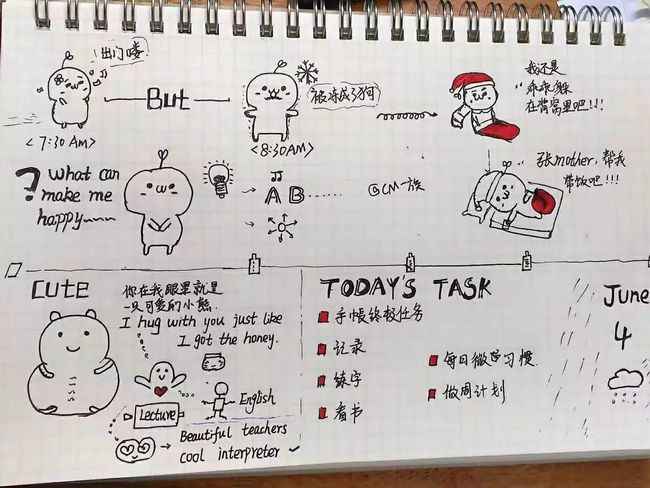 出门喽
But
被冻成了狗
我还是
乖乖躲
在背窝里吧!!!
二三
<7:30AM>
<8:30AM>
? What can
make me
happy~~~
A B ......
@CM一族
张mother,帮我
带饭吧!!!
CUTE
你在我眼里就是
一只可爱的小熊.
I hug with you just like
I got the honey.
Lecture
English
Beautiful teachers
cool interpreter
TODAY'S TASK
手帐终极任务
记录
练字
看书
每日微习惯.
做周计划
June
4